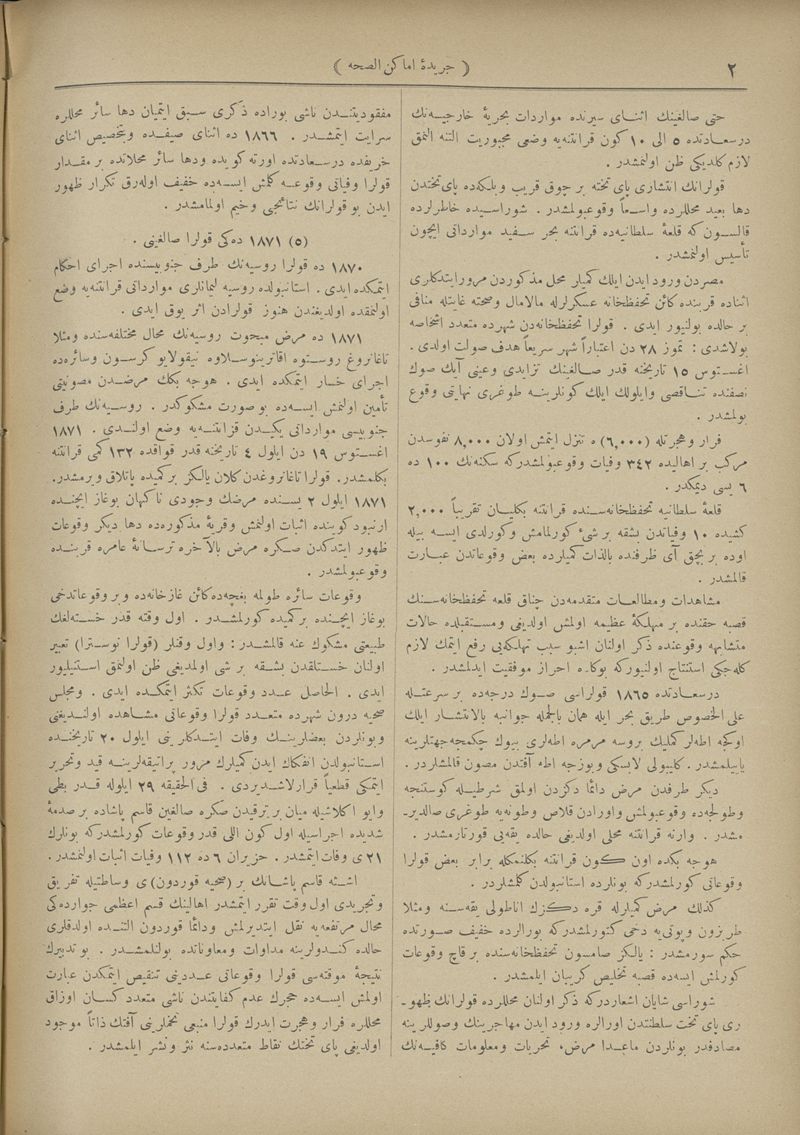 ٢
( جريدهٔ اماكن الصحه )
حتى صالغينك اثنـاى سيرنده مواردات بحريهٔ خارجيـه‌نك
درسعادتده ٥ الى ١٠ كون قرانتنه‌يه وضعى مجبوريت التنه النمق
لازم كلديكى ظن اولنمشدر .
قولرانك انتشارى پاى تخته بر چوق قريب وبلكه‌ده پاى تختدن
دها بعيد محللرده واسـعاً وقوعبولمشدر . شوراسـيده خاطرلرده
قالسـون كه قلعهٔ سلطانيه‌ده قرانتنه بحر سـفيد مواردانى ايچون
تأسيس اولنمشدر .
مصردن ورود ايدن ايلك كميلر محل مذكوردن مرور ايتدكلرى
اثناده قربنده كائن تحفظخانه عسكرلرله مالامال وصحته غايتله منافى
بر حالده بولنيور ايدى . قولرا تحفظخانه‌دن شهرده متعدد اشخاصه
بولاشدى : تموز ٢٨ دن اعتباراً شهر سريعاً هدف صولت اولدى .
اغسـتوس ١٥ تاريخنه قدر صـالغينك تزايدى وعينى آيك صوك
نصفنده تنـاقصى وايلولك ايلك كونلرينـه طوغرى نهايتى وقوع
بولمشدر .
فرار وهجرتله (٦,٠٠٠) ه تنزل ايتمش اولان ٨,٠٠٠ نفوسدن
مركب بر اهاليده ٣٤٢ وفيات وقوعبولمشدركه سكنه‌نك ١٠٠ ده
٦ يسى ديمكدر .
قلعهٔ سلطانيه تحفظخانه‌سـنده قرانتنه بكليـان تقريباً ٢,٠٠٠
كشيده ١٠ وفياتدن بشقه بر شئ كورلمامش وكورلدى ايسـه بيله
اوده بر بچق آى ظرفنده بالذات كميلرده بعض وقوعاتدن عبـارت
قالمشدر .
مشاهدات ومطالعـات متقدمه‌دن چناق قلعه تحفظخانه‌سـنك
قصبه حقنده بر مهلكهٔ عظيمه اولمش اولديغى ومسـتقبلده حالات
متشابهه وقوعنده ذكر اولنان اشبو سبب تهلكه‌يى رفع ايتمك لازم
كله‌جكى استنتاج اولنيوركه بوكاده احراز موفقيت ايدلمشدر .
درسـعادتده ١٨٦٥ قولراسى صـوك درجه‌ده بر سرعتـله
على الخصوص طريق بحر ايله همان بالجمله جوانبه بالانتشار ايلك
اوكجه اطه‌لر كمليك بروسه مرمره اطه‌لرى بيوك چكمجه جهتلرينه
ياييلمشدر . كليبولى لاپسكى وبوزجه اطه آفتدن مصون قالمشلردر .
ديكر طرفدن مرض دائما دكزدن اولمق شرطيـله كوستنجه
وطولجه‌ده وقوعبولمش واورادن قلاص وطونه‌يه طوغرى صالديرـ
مشدر . وارنه قرانتنه محلى اولديغى حالده يقه‌يى قورتارمشدر .
هوجه بكده اون كون قرانتنه بكلنمكله برابر بعض قولرا
وقوعاتى كورلمشدركه بونلرده استانبولدن كلمشلردر .
كذلك مرض كميلرله قره دكزك اناطولى يقه‌سـنه ومثلا
طربزون وپوتى‌يه دخى كتورلمشدركه بورالرده خفيف صـورتده
حكم سورمشدر : يالكز صامسون تحفظخانه‌سنده بر قاچ وقوعات
كورلمش ايسه‌ده قصبه تخليص كريبان ايلمشدر .
شوراسى شايان اشعاردركه ذكر اولنان محللرده قولرانك ظهوـ
رى پاى تخت سلطنتدن اورالره ورود ايدن مهاجرينك وصوللرينه
مصادفدر بونلردن ماعـدا مرض، تحريات ومعلومات كافيه‌نك
مفقوديتنـدن ناشى بوراده ذكرى سـبق ايتميان دها سائر محللره
سرايت ايتمشـدر . ١٨٦٦ ده اثناى صيفـده وبتخصيص اثناى
خريفده درسـعادتده اورته كويده ودها سائر محلاتده بر مقـدار
قولرا وفياتى وقوعـه كلمش ايسـه‌ده خفيف اوله‌رق تكرار ظهور
ايدن بو قولرانك نتائجى وخيم اولمامشدر .
(٥) ١٨٧١ ده‌كى قولرا صالغينى .
١٨٧٠ ده قولرا روسيه‌نك طرف جنوبيسنده اجراى احكام
ايتمكده ايدى . استانبولده روسيه ليمانلرى مواردانى قرانتنه‌يه وضع
اولنمقده اولديغندن هنوز قولرادن اثر يوق ايدى .
١٨٧١ ده مرض مبحوث روسيه‌نك محال مختلفه‌سنده ومثلا
تاغانروغ روسـتوه اقاترينوسـلاوه نيقولايو كرسـون وسائره‌ده
اجراى خسـار ايتمكده ايدى . هوجه بكك مرضـدن مصونيتى
تأمين اولنمش ايسـه‌ده بو صورت مشكوكدر . روسـيه‌نك طرف
جنوبيسى مواردانى يكيـدن قرانتنـه‌يه وضع اولنـدى . ١٨٧١
اغسـتوس ١٩ دن ايلول ٤ تاريخنه قدر قواقده ١٣٢ كمى قرانتنه
بكلمشدر. قولرا تاغانروغدن كلان يالكز بر كميده پاتلاق ويرمشدر.
١٨٧١ ايلول ٢ يسـنده مرضك وجودى ناكهان بوغاز ايچنـده
ارنبودكوينده اثبات اولنمش وقريهٔ مذكوره‌ده دها ديكر وقوعات
ظهور ايتدكدن صكره مرض بالآخره ترسـانهٔ عامره قربنـده
وقوعبولمشدر .
وقوعات سائره طولمه بغچه‌ده‌كائن غازخانه‌ده وبر وقوعاتدخى
بوغاز ايچنـده بر كميده كورلمشـدر . اول وقته قدر خسـته‌لغك
طبيعتى مشكوك عنه قالمشدر : واول وقتلر (قولرا نوسـترا) تعبير
اولنان خستلقدن بشـقه بر شى اولمديغى ظن اولنمق اسـتنيليور
ايدى . الحاصل عـدد وقوعات تكثر ايتمكـده ايدى . ومجلس
صحيه درون شهرده متعـدد قولرا وقوعاتى مشـاهده اولنـديغنى
وبونلردن بعضلرينـك وفات ايتـدكلرينى ايلول ٢٠ تاريخنـده
استانبولدن انفكاك ايدن كميلرك مرور پراتيقه‌لرينـه قيد وتحرير
ايتمكى قطعياً قرارلاشـديردى . فى‌الحقيقه ٢٩ ايلوله قـدر بطى
وايو اكلاشيله ميان بر ترقيدن صكره صالغين قاسم پاشاده بر صدمهٔ
شديده اجراسيله اول كون اللى قدر وقوعات كورلمشدركه بونلرك
٢١ى وفات ايتمشدر . حزيران ٦ ده ١١٢ وفيات اثبات اولنمشدر.
اشـته قاسم پاشـانك بر (صحيه قوردون)ى وساطتيله تفريق
وتجريدى اول وقت تقرر ايتمشدر اهالينك قسم اعظمى جوارده‌كى
محال مرتفعه‌يه نقل ايتديرلمش ودائما قوردون التنـده اولدقلرى
حالده كنـدولرينه مداوات ومعاوناتده بولنلمشـدر . بو تدبيرك
نتيجهٔ موقته‌سى قولرا وقوعاتى عـددينى تنقيص ايتمكدن عبارت
اولمش ايسـه‌ده حجرك عدم كفايتندن ناشى متعدد كسـان اوزاق
محللره فرار وهجرت ايدرك قولرا منبعى تخملرينى آفتك ذاتاً موجود
اولديغى پاى تختك نقاط متعدده‌سنه نثر ونشر ايلمشدر .